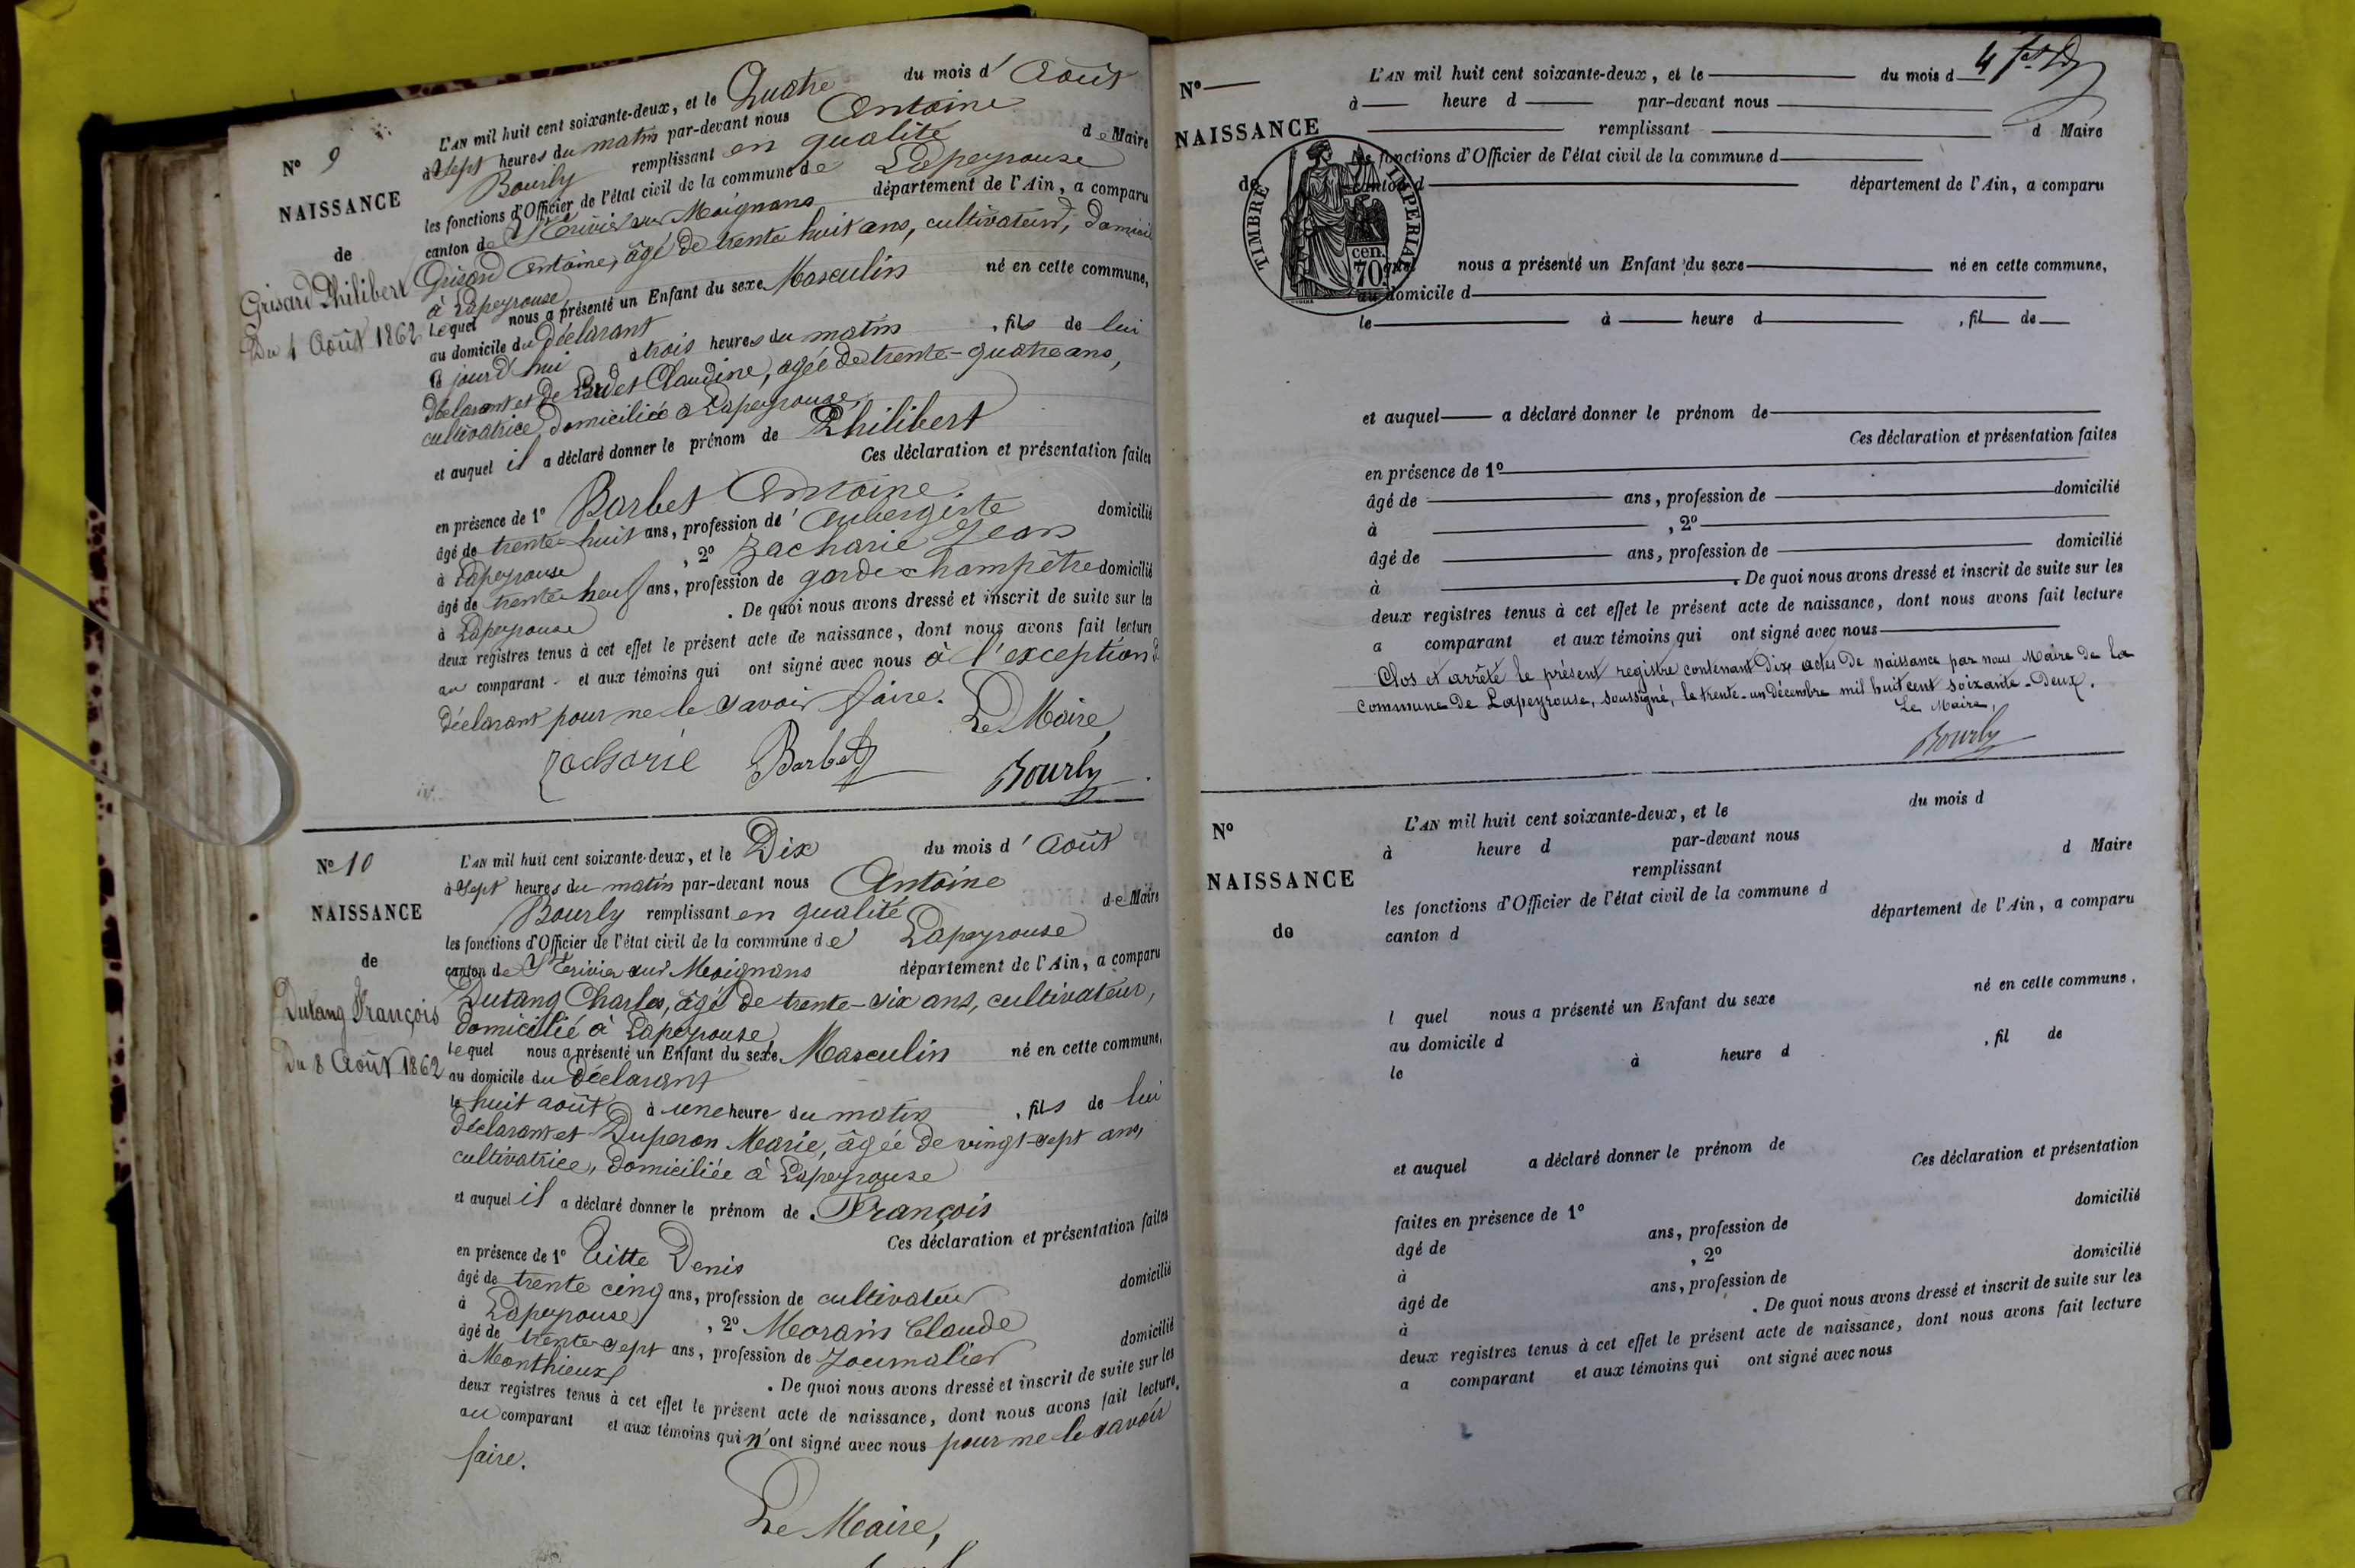 N° 9
NAISSANCE
de
Grisard Philibert
Du 4 Août 1862
L'AN mil huit cent soixante-deux, et le Quatre du mois d'Août
à Sept heures du matin par-devant nous Antoine
Bourly remplissant en qualité de Maire
les fonctions d'Officier de l'état civil de la commune de Lapeyrouse
canton de St Trivier sur Moignans département de l'Ain, a comparu
Grisard Antoine, âgé de trente huit ans, cultivateur, domicil
à Lapeyrouse
lequel nous a présenté un Enfant du sexe Masculin né en cette commune,
au domicile du déclarant
le jourd'hui à trois heures du matin, fils de lui
déclarant et de Claudine, agée de trente-quatre ans,
cultivatrice, domiciliée à Lapeyrouse,
et auquel il a déclaré donner le prénom de Philibert
Ces déclaration et présentation faites
en présence de 1° Barbet Antoine
âgé de trente-huit ans, profession d'Aubergiste domicilié
à Lapeyrouse, 2° Zacharie Jean
âgé de trente neuf ans, profession de garde champêtre domicilié
à Lapeyrouse. De quoi nous avons dressé et inscrit de suite sur les
deux registres tenus à cet effet le présent acte de naissance, dont nous avons fait lecture
au comparant et aux témoins qui ont signé avec nous à l'exception d
déclarant pour ne le savoir faire.
Le Maire,
Zacharie Barbet Bourly
N° 10
NAISSANCE
de
Dutang François
Du 8 Août 1862
L'AN mil huit cent soixante-deux, et le Dix du mois d'Août
à Sept heures du matin par-devant nous Antoine
Bourly remplissant en qualité de Maire
les fonctions d'Officier de l'état civil de la commune de Lapeyrouse
canton de St Trivier sur Moignans département de l'Ain, a comparu
Dutang Charles, âgé de trente-six ans, cultivateur,
domicilié à Lapeyrouse
lequel nous a présenté un Enfant du sexe Masculin né en cette commune,
au domicile du déclarant
le huit août à une heure du matin, fils de lui
déclarant et Duperon Marie, âgée de vingt-sept ans,
cultivatrice, domiciliée à Lapeyrouse
et auquel il a déclaré donner le prénom de François
Ces déclaration et présentation faites
en présence de 1° Titte Denis
âgé de trente cinq ans, profession de cultivateur domicilié
à Lapeyrouse, 2° Morain Claude
âgé de trente-sept ans, profession de Journalier domicilié
à Monthieux. De quoi nous avons dressé et inscrit de suite sur les
deux registres tenus à cet effet le présent acte de naissance, dont nous avons fait lecture,
au comparant et aux témoins qui n'ont signé avec nous pour ne le savoir
faire.
Le Maire,
4
N°
NAISSANCE
de
TIMBRE IMPERIAL
70 cen.
L'AN mil huit cent soixante-deux, et le du mois d
à heure d par-devant nous
remplissant d Maire
les fonctions d'Officier de l'état civil de la commune d
canton d département de l'Ain, a comparu
quel nous a présenté un Enfant du sexe né en cette commune,
au domicile d
le à heure d , fil de
et auquel a déclaré donner le prénom de
Ces déclaration et présentation faites
en présence de 1°
âgé de ans, profession de domicilié
à , 2°
âgé de ans, profession de domicilié
à . De quoi nous avons dressé et inscrit de suite sur les
deux registres tenus à cet effet le présent acte de naissance, dont nous avons fait lecture
a comparant et aux témoins qui ont signé avec nous
Clos et arrêté le présent registre contenant dix actes de naissance par nous Maire de la
commune de Lapeyrouse, soussigné, le trente-un décembre mil huit cent soixante-deux.
Le Maire,
Bourly
N°
NAISSANCE
de
L'AN mil huit cent soixante-deux, et le du mois d
à heure d par-devant nous
remplissant d Maire
les fonctions d'Officier de l'état civil de la commune d
canton d département de l'Ain, a comparu
l quel nous a présenté un Enfant du sexe né en cette commune,
au domicile d
le à heure d , fil de
et auquel a déclaré donner le prénom de
Ces déclaration et présentation
faites en présence de 1° domicilié
âgé de ans, profession de
à , 2° domicilié
âgé de ans, profession de
à . De quoi nous avons dressé et inscrit de suite sur les
deux registres tenus à cet effet le présent acte de naissance, dont nous avons fait lecture
a comparant et aux témoins qui ont signé avec nous